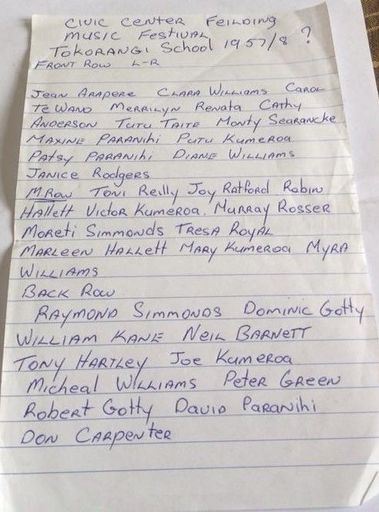 Civic Center Feilding
Music Festival
Tokorangi School 1957/8 ?
Front Row L-R
Jean Arapere Clara Williams Carol
Te Wano Merrilyn Renata Cathy
Anderson Tutu Taite Monty Searancke
Maxine Paranihi Putu Kumeroa
Patsy Paranihi Diane Williams
Janice Rodgers
M.Row Toni Reilly Joy Ratford Robin
Hallett Victor Kumeroa, Murray Rosser
Moreti Simmonds Tresa Royal
Marleen Hallett Mary Kumeroa Myra
Williams
Back Row
Raymond Simmonds Dominic Gotty
William Kane Neil Barnett
Tony Hartley Joe Kumeroa
Micheal Williams Peter Green
Robert Gotty David Paranihi
Don Carpenter